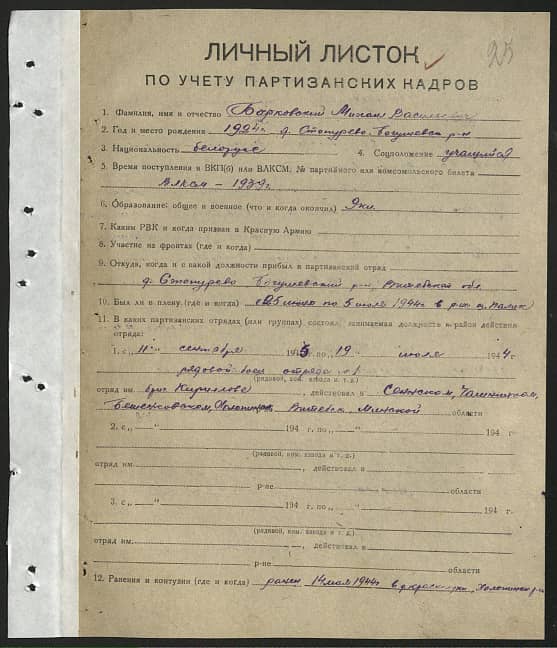 25
ЛИЧНЫЙ ЛИСТОК
ПО УЧЕТУ ПАРТИЗАНСКИХ КАДРОВ
1. Фамилия, имя и отчество Барковский Михаил Васильевич
2. Год и место рождения 1924 г. д. р-н
3. Национальность белорус 4. Соцположение учащийся
5. Время поступления в ВКП(б) или ВЛКСМ, № партийного или комсомольского билета
ВЛКСМ – 1939 г.
6. Образование: общее и военное (что и когда окончил) 9 кл.
7. Каким РВК и когда призван в Красную Армию
8. Участие на фронтах (где и когда)
9. Откуда, когда и с какой должности прибыл в партизанский отряд
д. р-н, Витебской обл.
10. Был ли в плену (где и когда) с 25 июня по 5 июля 1944 г. в р-не
11. В каких партизанских отрядах (или группах) состоял, занимаемая должность и район действия
отряда:
1. с „11“ сентября 194 г. по „19“ июля 1944 г.
рядовой боец отряда №1
(рядовой, ком. взвода и т. д.)
отряд им. бриг. Кириллова, действовал в Сенненском, Чашникском,
Бешенковском, Витебск. Минской области
2. с „ “ 194 г. по „ “ 194 г.
(рядовой, ком. взвода и т. д.)
отряд им. , действовал в
р-не области
3. с „ “ 194 г. по „ “ 194 г.
(рядовой, ком. взвода и т. д.)
отряд им. , действовал в
р-не области
12. Ранения и контузии (где и когда) ранен 14 мая 1944 г.